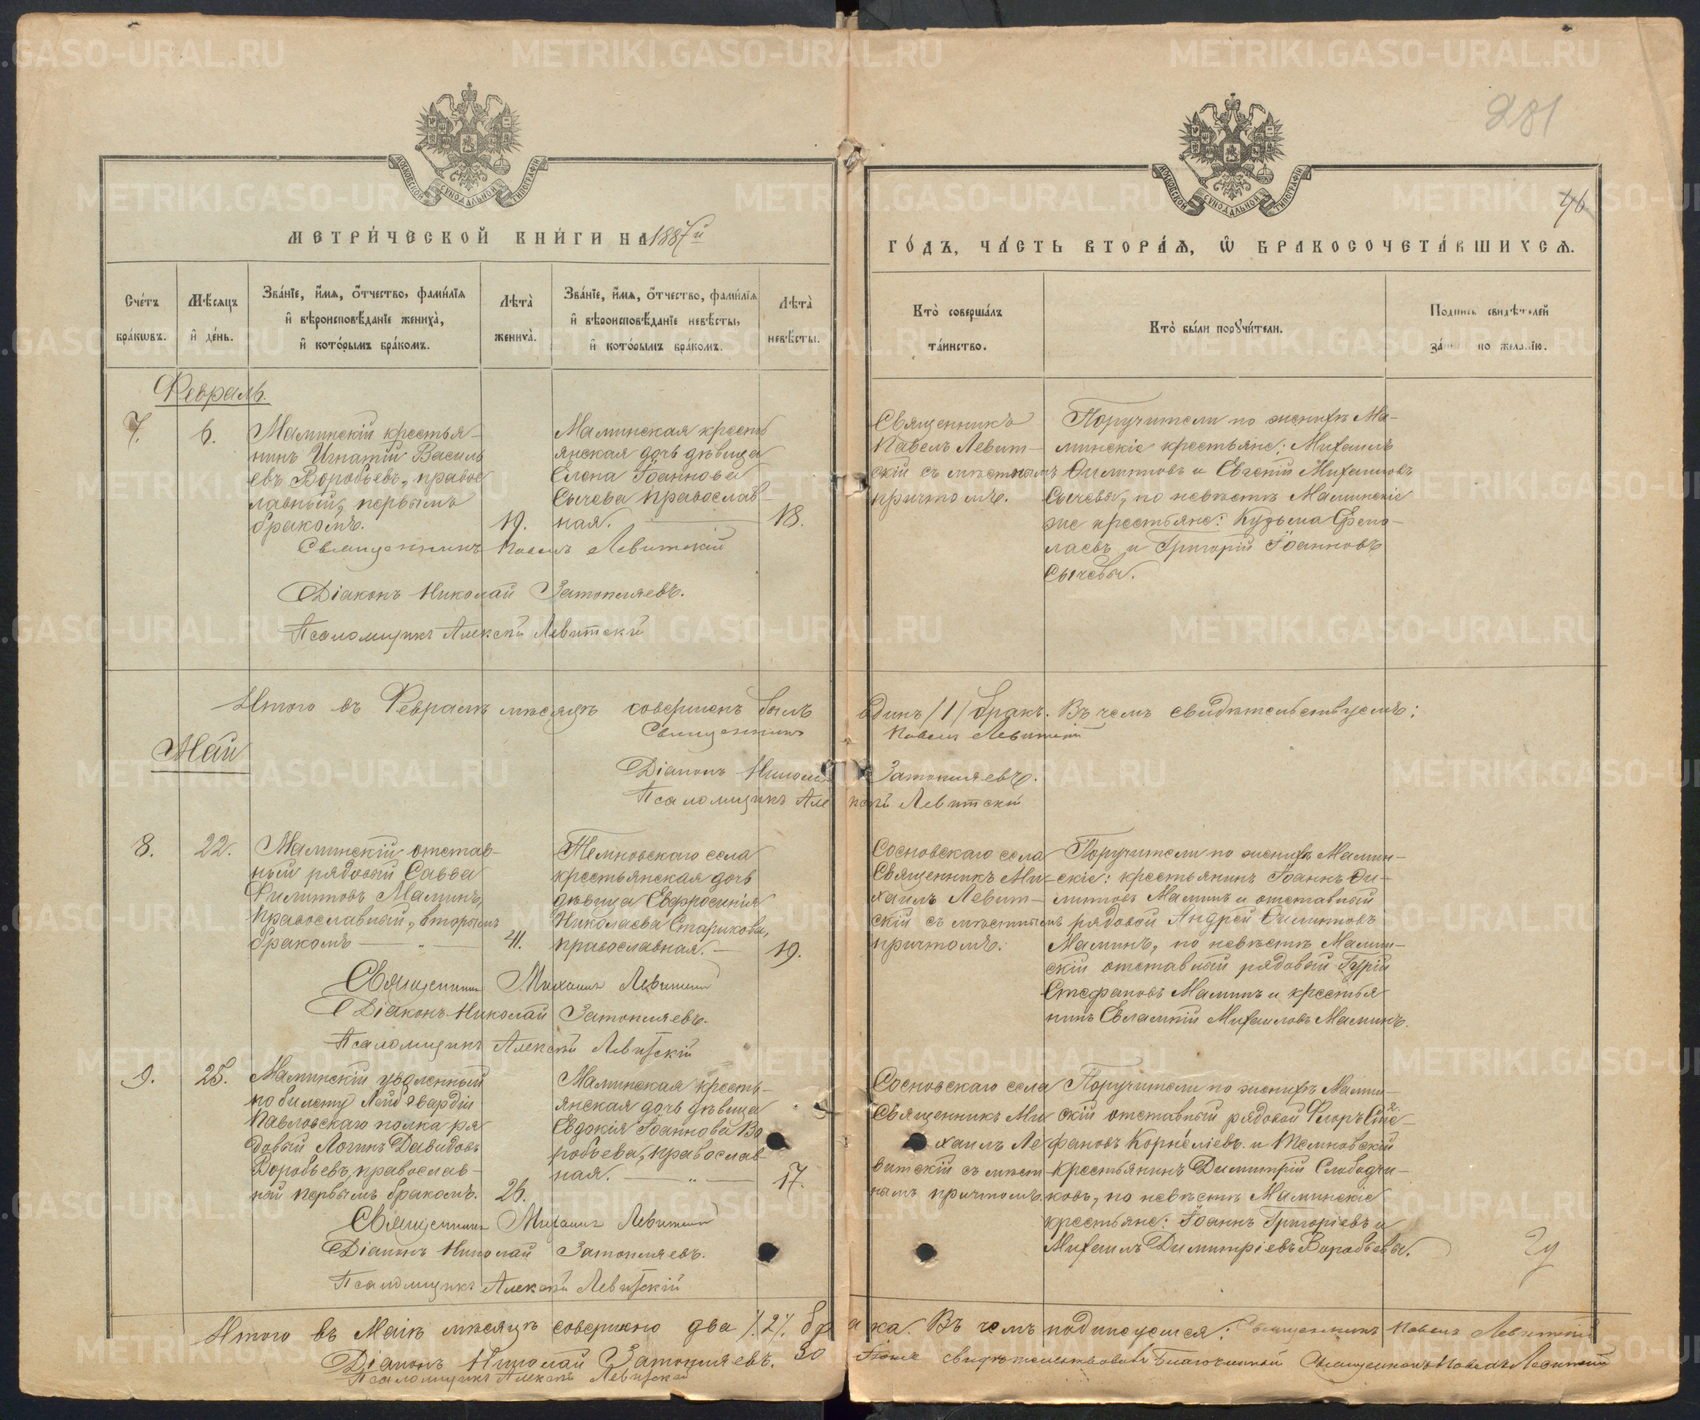 281
76
МЕТРИЧЕСКОЙ КНИГИ НА 1887й
ГОДЪ, ЧАСТЬ ВТОРАЯ, Ѡ БРАКОСОЧЕТАВШИХСЯ.
Счетъ браковъ.
Мѣсяцъ и день.
Званіе, имя, отчество, фамилія
и вѣроисповѣданіе жениха,
и которымъ бракомъ.
Лѣта
жениха.
Званіе, имя, отчество, фамилія
и вѣроисповѣданіе невѣсты,
и которымъ бракомъ.
Лѣта
невѣсты.
Кто совершалъ
таинство.
Кто были поручители.
Подпись свидѣтелей
по желанію.
Февраль
7.
6.
Маминскій крестья-
нинъ Игнатій Василь
евъ Воробьевъ, правос
лавный, первымъ
бракомъ.
19.
Маминская кресть
янская дочь дѣвица
Елена Іоаннова
Сычева православ-
ная.
18.
Священникъ
Павелъ Левит-
скій съ мѣстнымъ
причтомъ.
Поручители по женихѣ Ма-
минскіе крестьяне: Михаилъ
Филипповъ и Евгеній Михаиловъ
Сычевы, по невѣстѣ Маминскіе
же крестьяне: Кузьма
и Григорій Іоанновъ
Сычевы.
Священникъ Павелъ Левитскій
Діаконъ Николай Затопляевъ.
Псаломщикъ Алексѣй Левитскій
Итого въ Февралѣ мѣсяцѣ совершенъ былъ одинъ /1/ бракъ. Въ чемъ свидѣтельствуемъ:
Священникъ Павелъ Левитскій
Діаконъ Николай Затопляевъ.
Псаломщикъ Алексѣй Левитскій
Май
8.
22.
Маминскій отстав-
ный рядовой Савва
Филипповъ Маминъ,
православный, вторымъ
бракомъ
41.
Темновскаго села
крестьянская дочь
дѣвица Евфросинія
Николаева Старикова,
православная.
19.
Сосновскаго села
Священникъ Ми-
хаилъ Левит-
скій съ мѣстнымъ
причтомъ.
Поручители по женихѣ Мамин-
скіе: крестьянинъ Іоаннъ Фи-
липповъ Маминъ и отставный
рядовой Андрей Филипповъ
Маминъ, по невѣстѣ Мамин-
скій отставный рядовый Гурій
Стефановъ Маминъ и крестья
нинъ Евлампій Михаиловъ Маминъ.
Священникъ Михаилъ Левитскій
Діаконъ Николай Затопляевъ.
Псаломщикъ Алексѣй Левитскій
9.
25.
Маминскій уволенный
по билету Лейб гвардіи
Павловскаго полка ря
довый Логинъ Давидовъ
Воробьевъ, православ-
ный первымъ бракомъ.
26.
Маминская кресть-
янская дочь дѣвица
Евдокія Іоаннова Во
робьева, православ
ная.
17.
Сосновскаго села
Священникъ Ми
хаилъ Ле
витскій съ мѣст
нымъ причтомъ.
Поручители по женихѣ Мамин-
скій отставный рядовой Флоръ Сте-
фановъ Корнѣліевъ и Темновскій
крестьянинъ Димитрій Слободчи-
ковъ, по невѣстѣ Маминскіе
крестьяне: Іоаннъ Григоріевъ и
Михаилъ Димитріевъ Воробьевы.
Священникъ Михаилъ Левитскій
Діаконъ Николай Затопляевъ.
Псаломщикъ Алексѣй Левитскій
Итого въ Маіѣ мѣсяцѣ совершено два /2/ брака. Въ чемъ подписуемся: Священникъ Павелъ Левитскій
Діаконъ Николай Затопляевъ.
Псаломщикъ Алексѣй Левитскій
свидѣтельствовалъ Благочинный Священникъ Павелъ Левитскій
METRIKI.GASO-URAL.RU